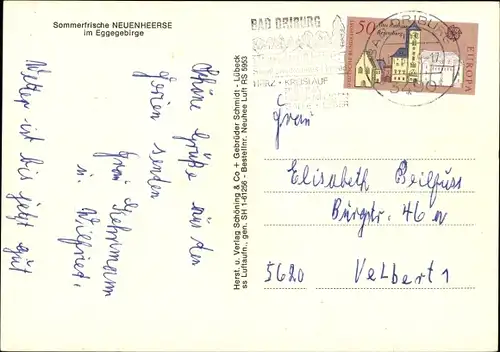 Sommerfrische NEUENHEERSE
im Eggegebirge
Schöne Grüße aus den
Ferien senden
Frau
u. Wilfried.
Wetter ist bis jetzt gut
Herst. u. Verlag Schöning & Co + Gebrüder Schmidt - Lübeck
ss Luftaufn., gen. SH 1-6/1256 - Bestellnr. Neuhee Luft RS 5953
BAD DRIBURG
HERZ - KREISLAUF
50
EUROPA
BAD DRIBURG
Frau
Elisabeth Beilfuss
Burgstr. 46a
5620 Velbert 1